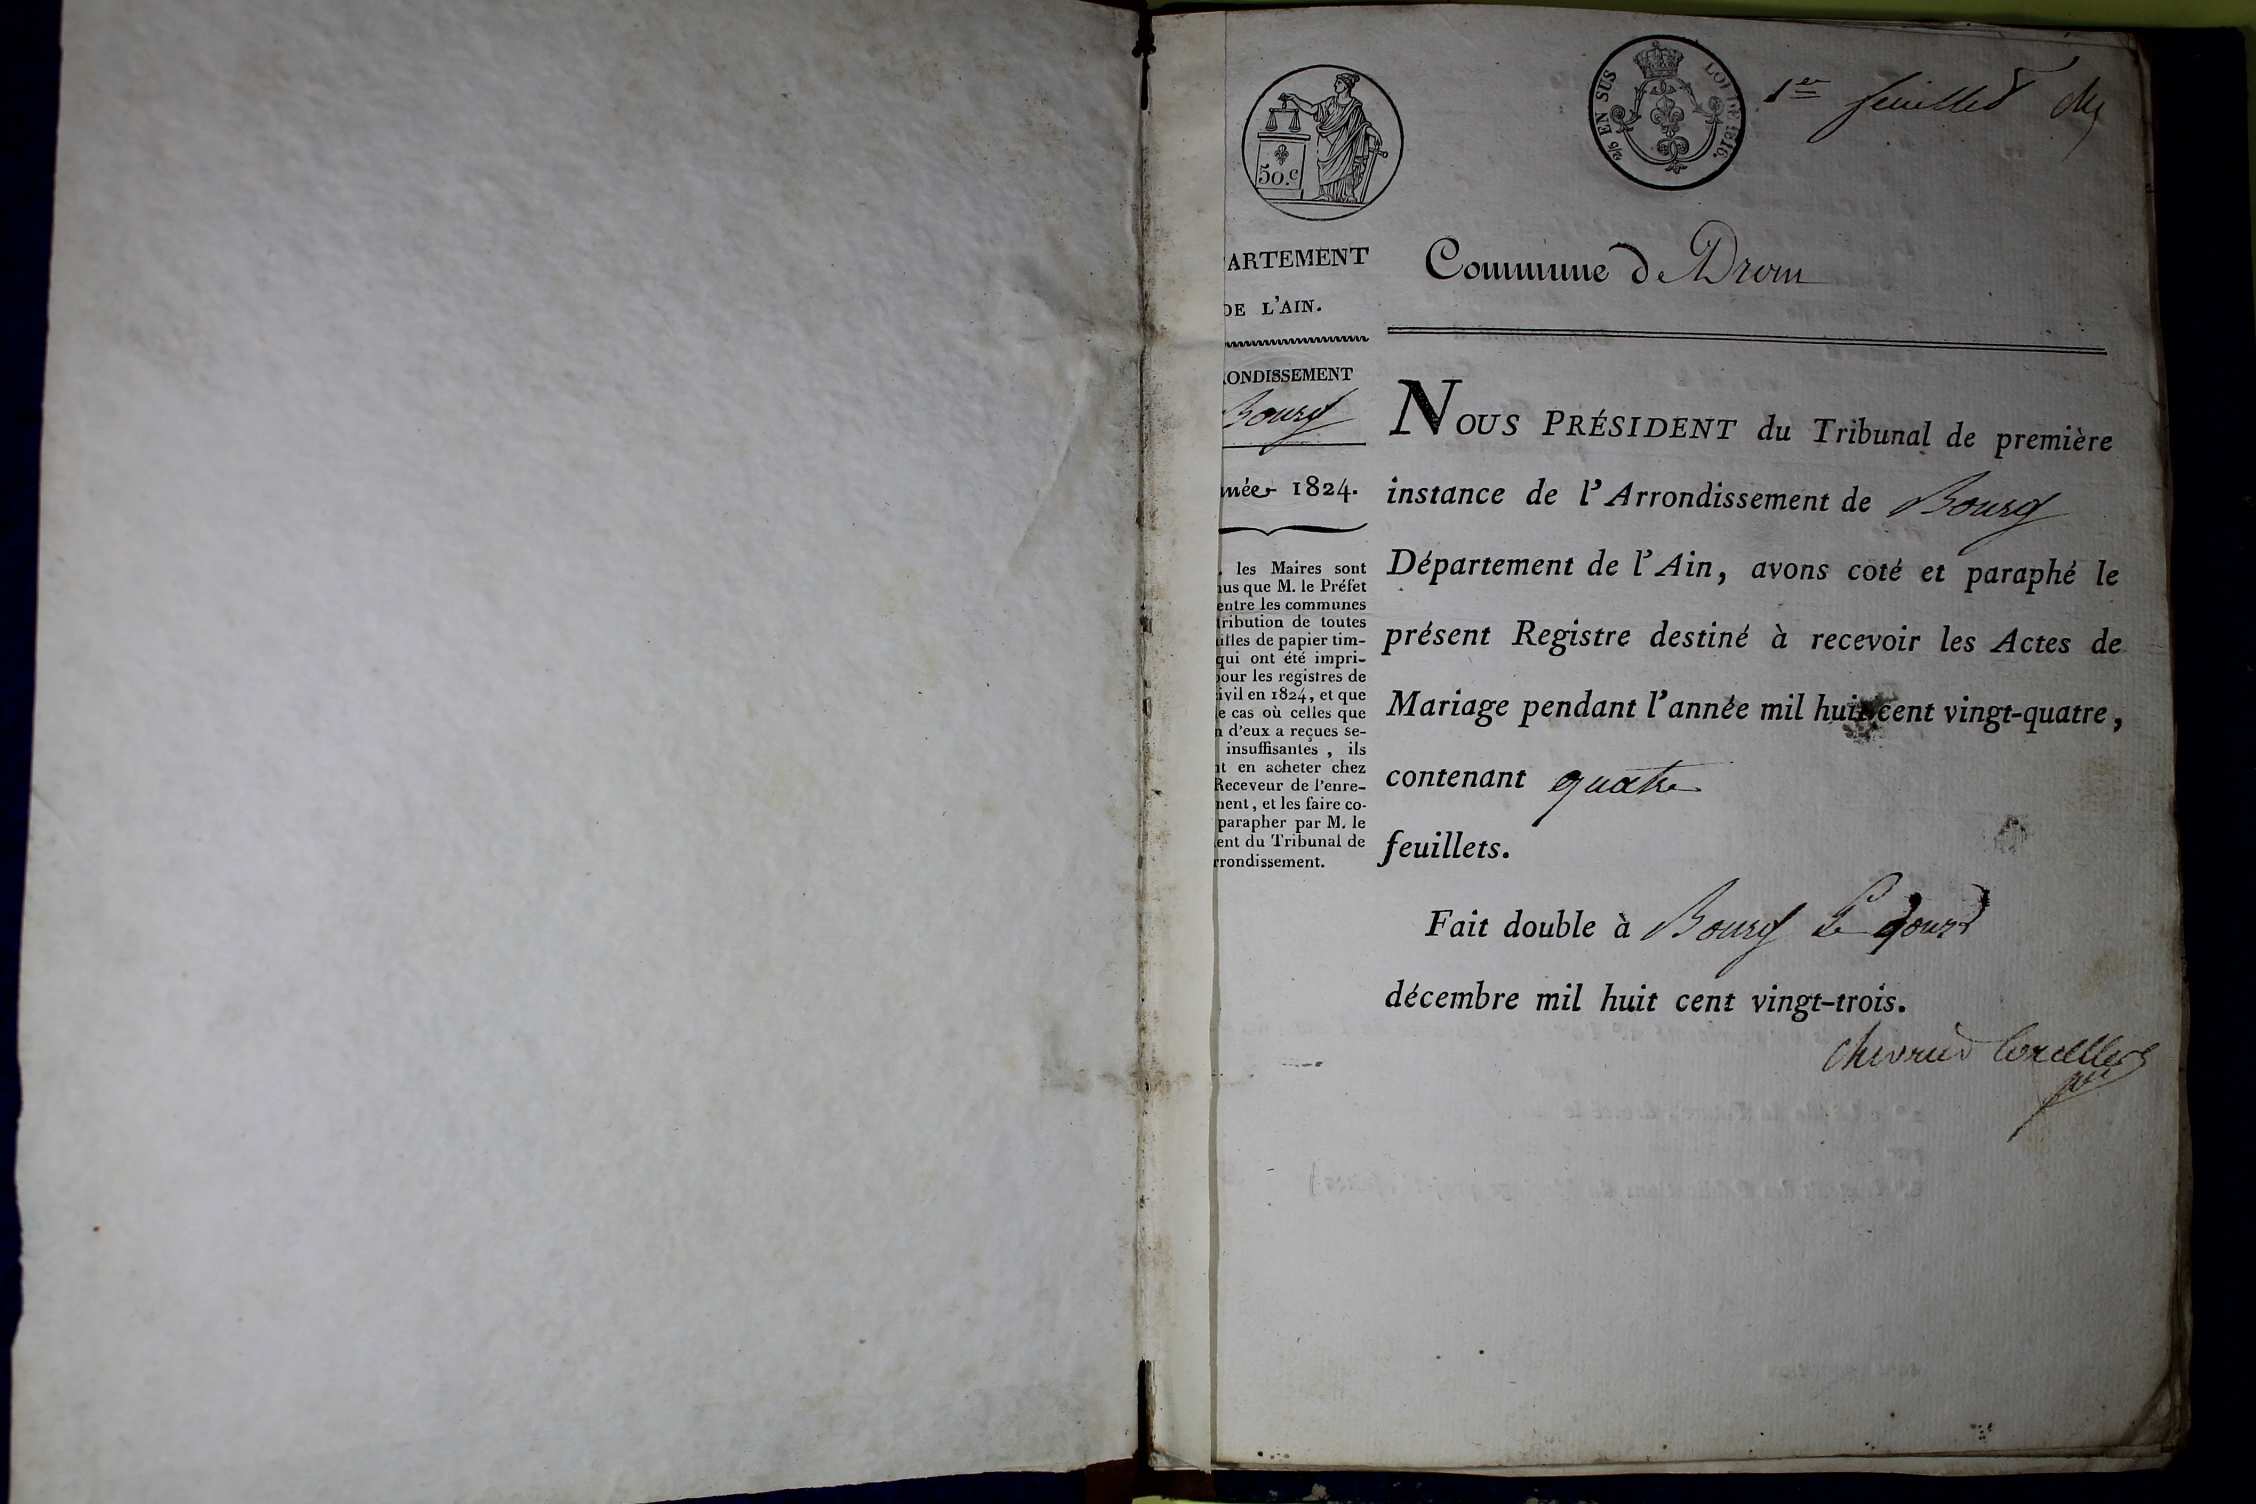 50.c
EN SUS
LOI DE 1816.
1er feuillet
Commune de Drom
ARTEMENT
DE L'AIN.
ONDISSEMENT
Bourg
née 1824.
les Maires sont
us que M. le Préfet
entre les communes
tribution de toutes
illes de papier tim-
qui ont été impri-
pour les registres de
ivil en 1824, et que
e cas où celles que
n d'eux a reçues se-
insuffisantes, ils
nt en acheter chez
Receveur de l'enre-
ment, et les faire co-
parapher par M. le
ent du Tribunal de
rrondissement.
NOUS PRÉSIDENT du Tribunal de première
instance de l'Arrondissement de Bourg
Département de l'Ain, avons coté et paraphé le
présent Registre destiné à recevoir les Actes de
Mariage pendant l'année mil huit cent vingt-quatre,
contenant quatre
feuillets.
Fait double à Bourg le
décembre mil huit cent vingt-trois.